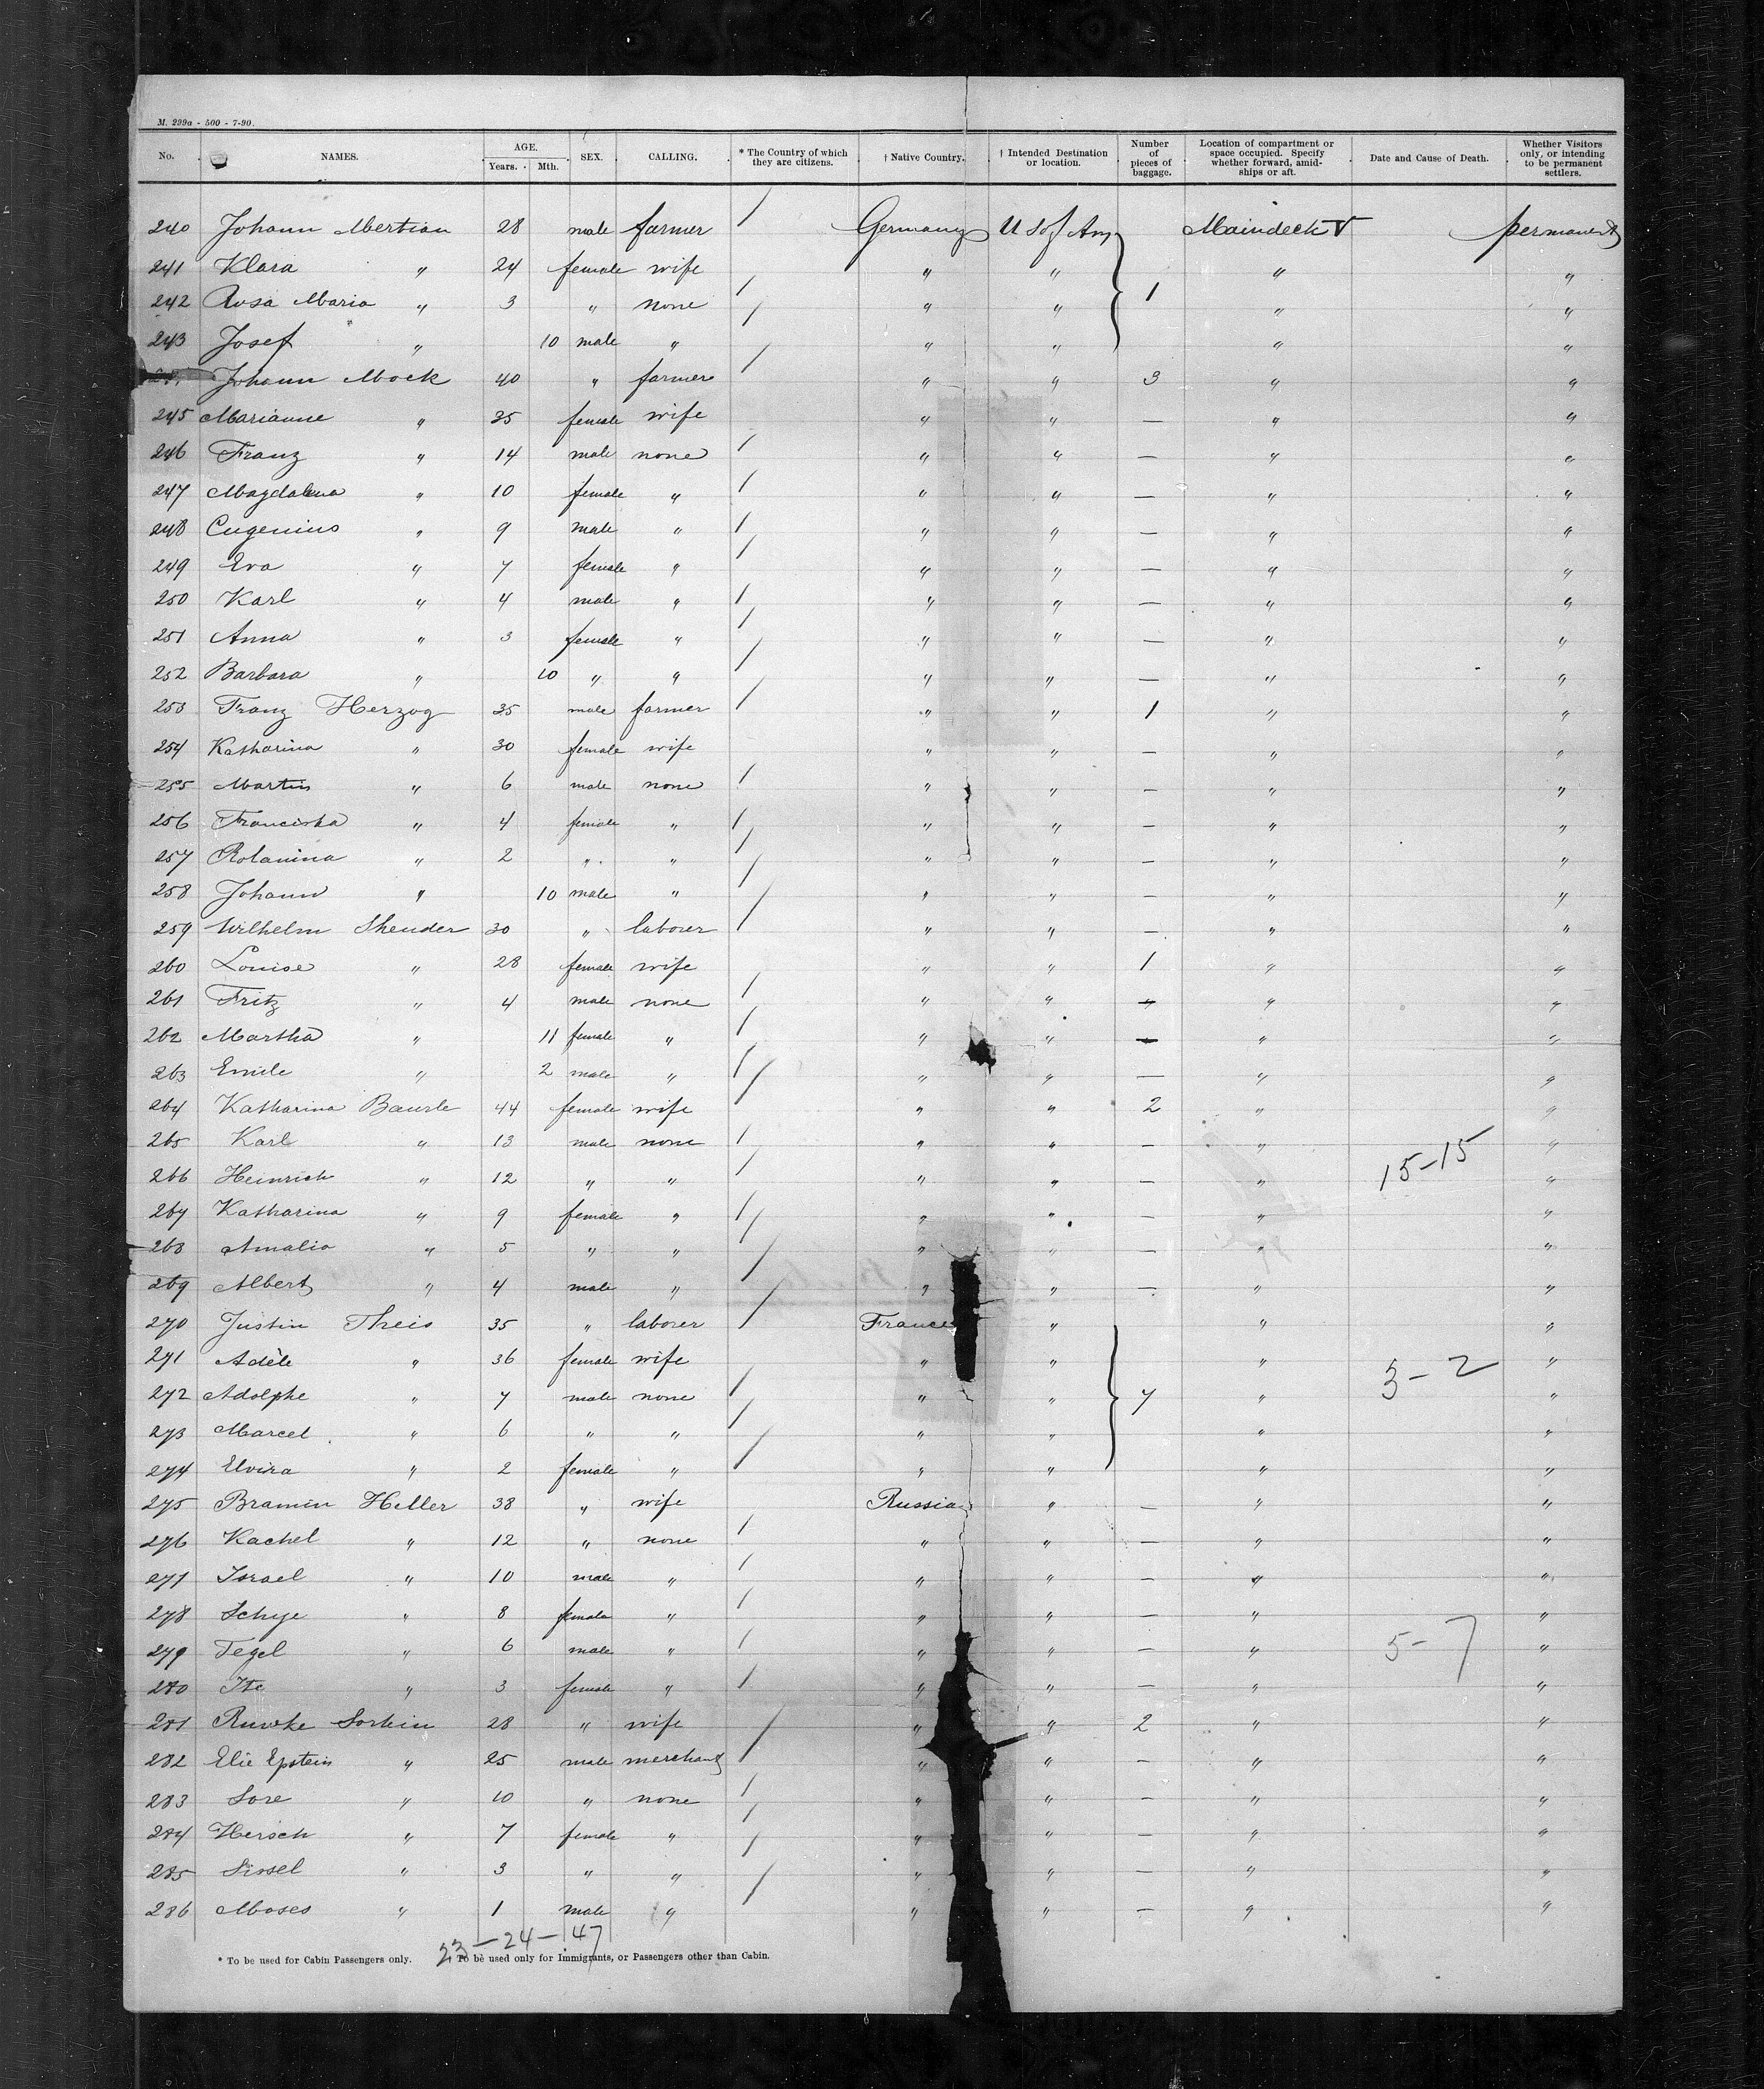 M. 299a - 500 - 7-90.
No. NAMES. AGE. Years. Mth. SEX. CALLING. * The Country of which they are citizens. † Native Country. † Intended Destination or location. Number of pieces of baggage. Location of compartment or space occupied. Specify whether forward, amidships or aft. Date and Cause of Death. Whether Visitors only, or intending to be permanent settlers.
240 Johann Mertian 28 male farmer / Germany U S of Am Maindeck V permanent
241 Klara " 24 female wife " " " "
242 Rosa Maria " 3 " none / " " 1 " "
243 Josef " 10 male " / " " " "
Johann Mock 40 " farmer / " " 3 " "
245 Marianne " 35 female wife " " — " "
246 Franz " 14 male none / " " — " "
247 Magdalena " 10 female " / " " — " "
248 Eugenius " 9 male " / " " — " "
249 Eva " 7 female " / " " — " "
250 Karl " 4 male " / " " — " "
251 Anna " 3 female " / " " — " "
252 Barbara " 10 " " / " " — " "
253 Franz Herzog 35 male farmer / " " 1 " "
254 Katharina " 30 female wife " " — " "
255 Martin " 6 male none / " " — " "
256 Franciska " 4 female " / " " — " "
257 " 2 " " / " " — " "
258 Johann " 10 male " / " " — " "
259 Wilhelm Shender 30 " laborer / " " — " "
260 Louise " 28 female wife " " 1 " "
261 Fritz " 4 male none / " " — " "
262 Martha " 11 female " / " " — " "
263 Emile " 2 male " / " " — " "
264 Katharina Baurle 44 female wife / " " 2 " "
265 Karl " 13 male none / " " — " 15-15 "
266 Heinrich " 12 " " / " " — " "
267 Katharina " 9 female " / " " — " "
268 Amalia " 5 " " / " " — " "
269 Albert " 4 male " / " " — " "
270 Justin Theis 35 " laborer / France " " "
271 Adèle " 36 female wife " " " 3-2 "
272 Adolphe " 7 male none / " " 7 " "
273 Marcel " 6 " " / " " " "
274 Elvira " 2 female " / " " " "
275 Bramin Heller 38 " wife Russia " — " "
276 Rachel " 12 " none / " " — " "
277 Israel " 10 male " / " " — " "
278 Schye " 8 female " / " " — " "
279 Tegel " 6 male " / " " — " 5-7 "
280 Ite " 3 female " / " " — " "
281 Ruwke Sorkin 28 " wife " " 2 " "
282 Elie Epstein " 25 male merchant / " " — " "
283 Sore " 10 " none / " " — " "
284 Hersch " 7 female " / " " — " "
285 Sissel " 3 " " / " " — " "
286 Moses " 1 male " / " " — " "
23-24-47
* To be used for Cabin Passengers only. To be used only for Immigrants, or Passengers other than Cabin.